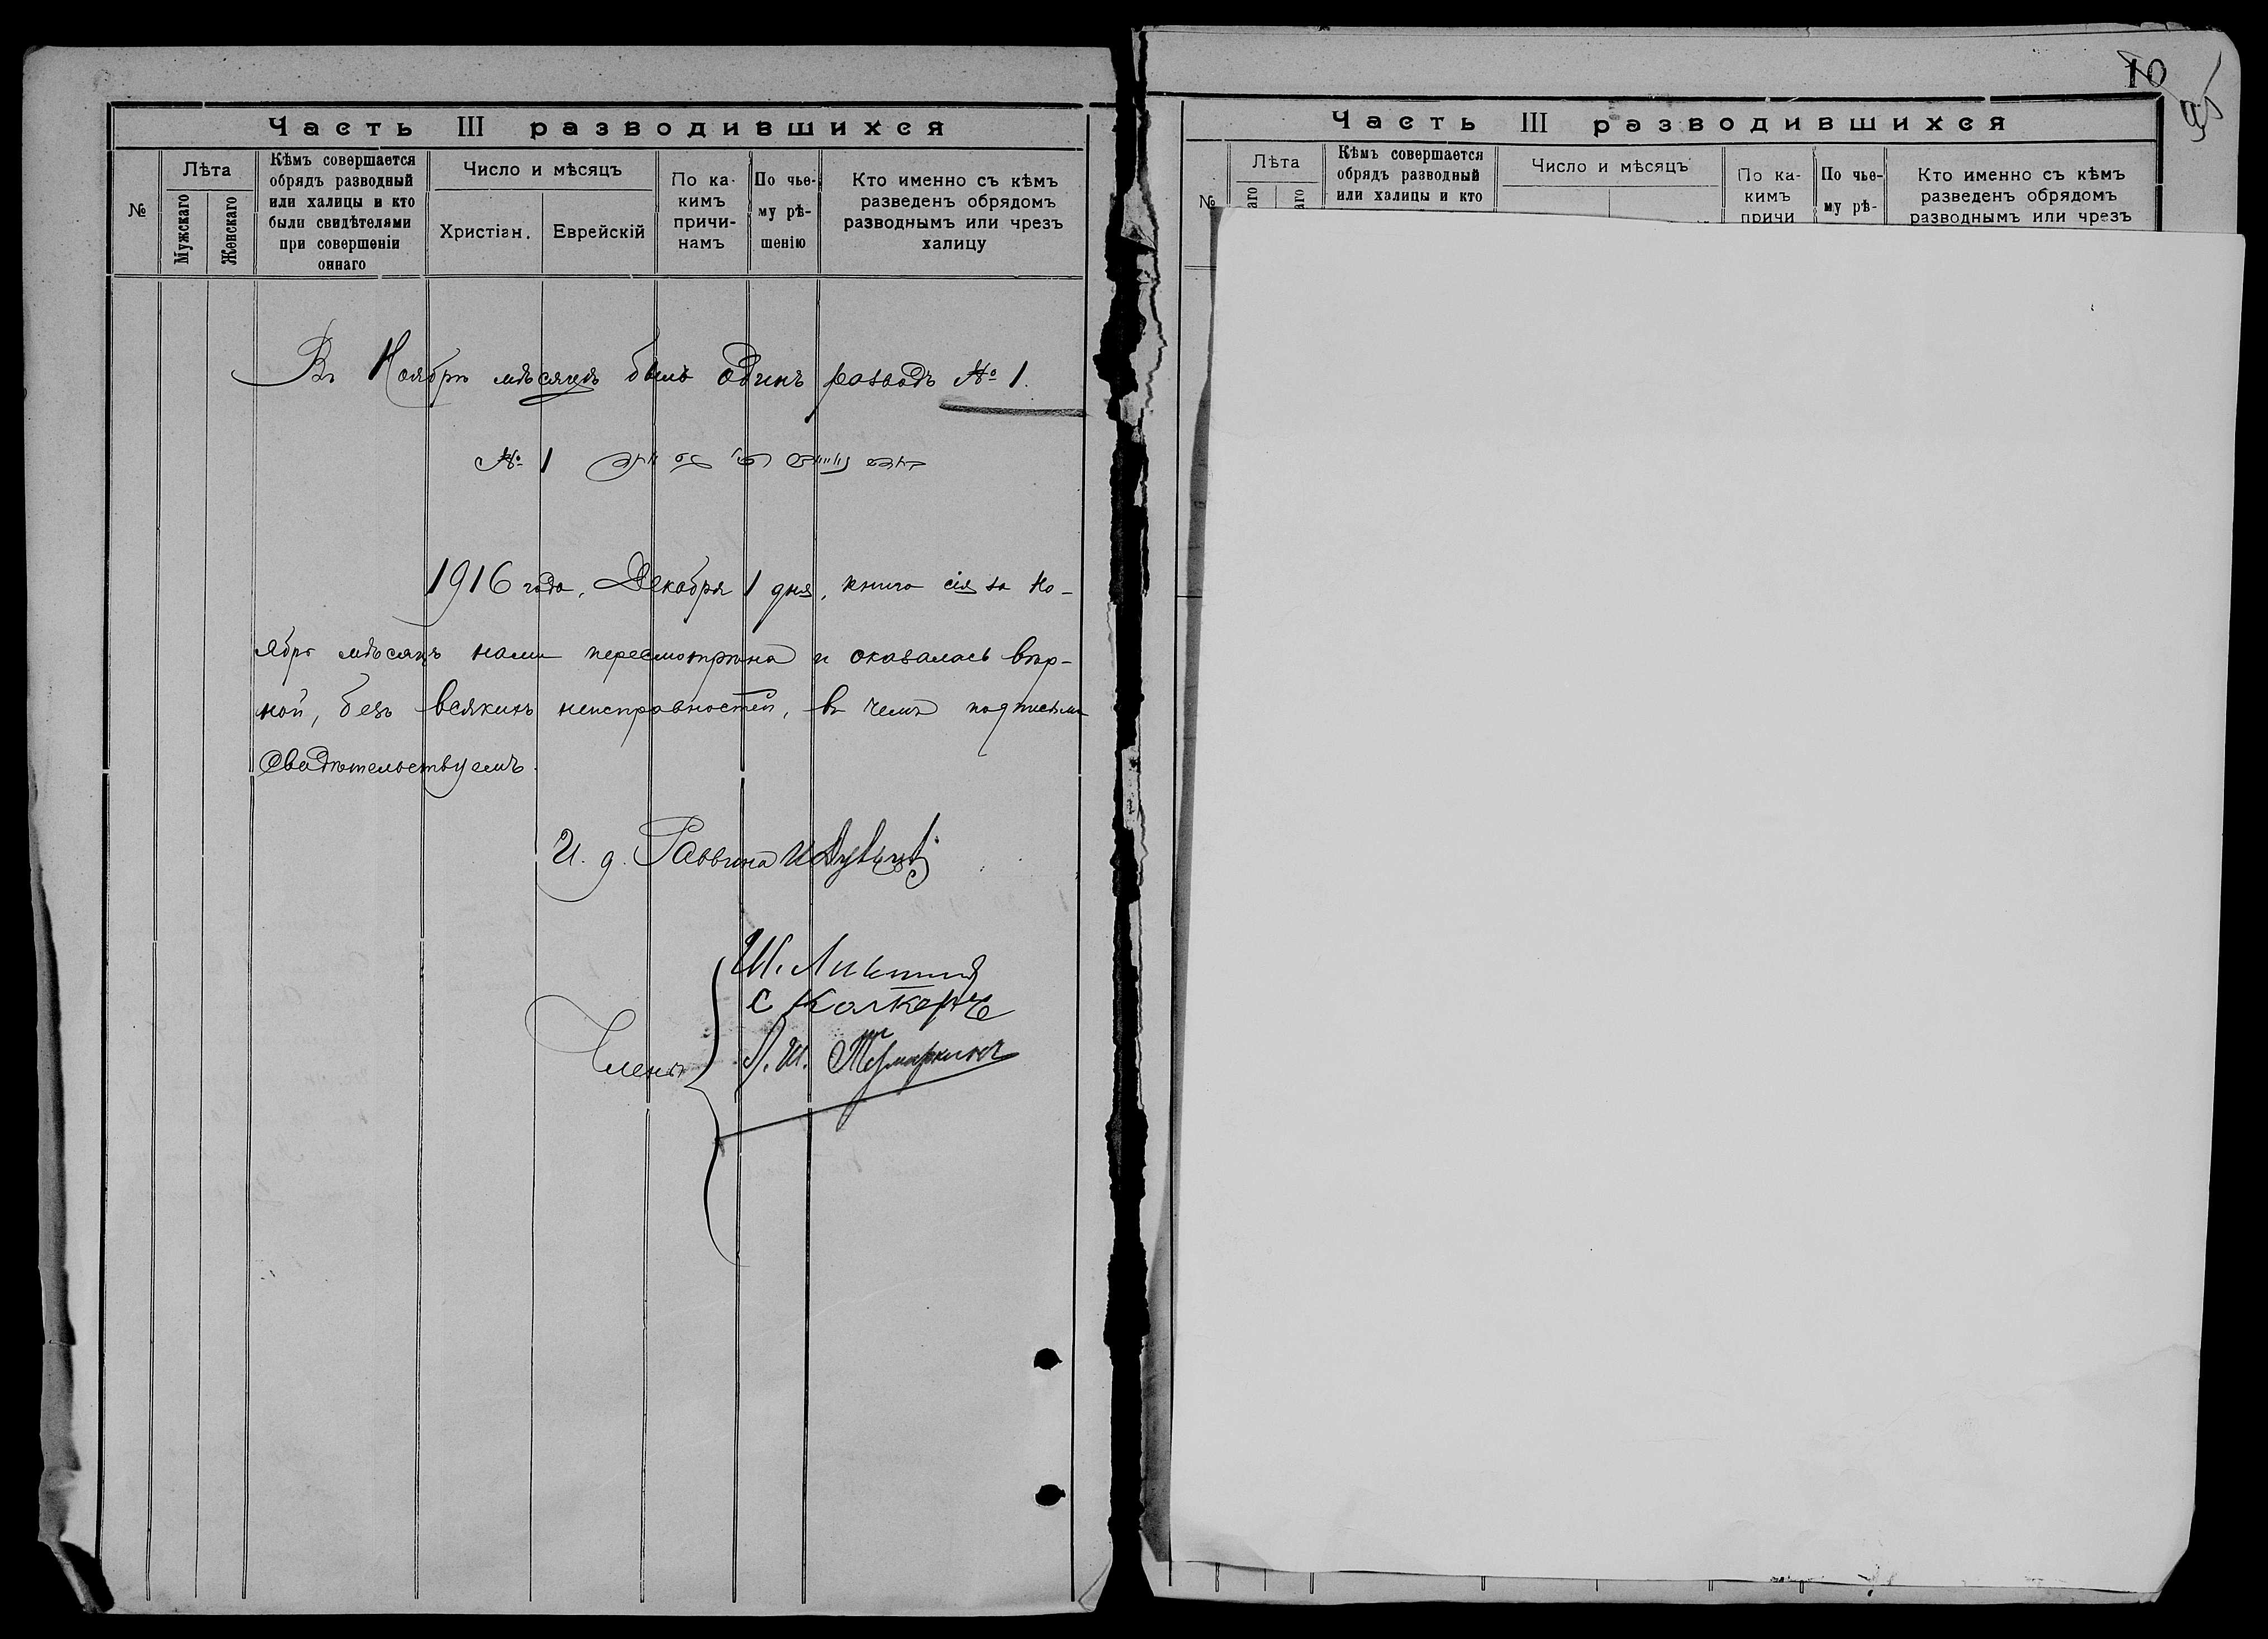 Часть III разводившихся
№
Лѣта
Мужскаго
Женскаго
Кѣмъ совершается
обрядъ разводный
или халицы и кто
были свидѣтелями
при совершеніи
оннаго
Число и мѣсяцъ
Христіан.
Еврейскій
По ка-
кимъ
причи-
намъ
По чье-
му рѣ-
шенію
Кто именно съ кѣмъ
разведенъ обрядомъ
разводнымъ или чрезъ
халицу
Въ Ноябрѣ мѣсяцѣ былъ одинъ разводъ № 1.
№ 1
1916 года, Декабря 1 дня, книга сія за Но-
ябрь мѣсяцъ нами пересмотрѣна и оказалась вѣр-
ной, безъ всякихъ неисправностей, въ чемъ подписями
свидѣтельствуемъ.
И. д. Раввина
Члены
Ш.
С
Л. Ш.
10
Часть III разводившихся
№
Лѣта
аго
аго
Кѣмъ совершается
обрядъ разводный
или халицы и кто
Число и мѣсяцъ
По ка-
кимъ
причи
По чье-
му рѣ-
Кто именно съ кѣмъ
разведенъ обрядомъ
разводнымъ или чрезъ